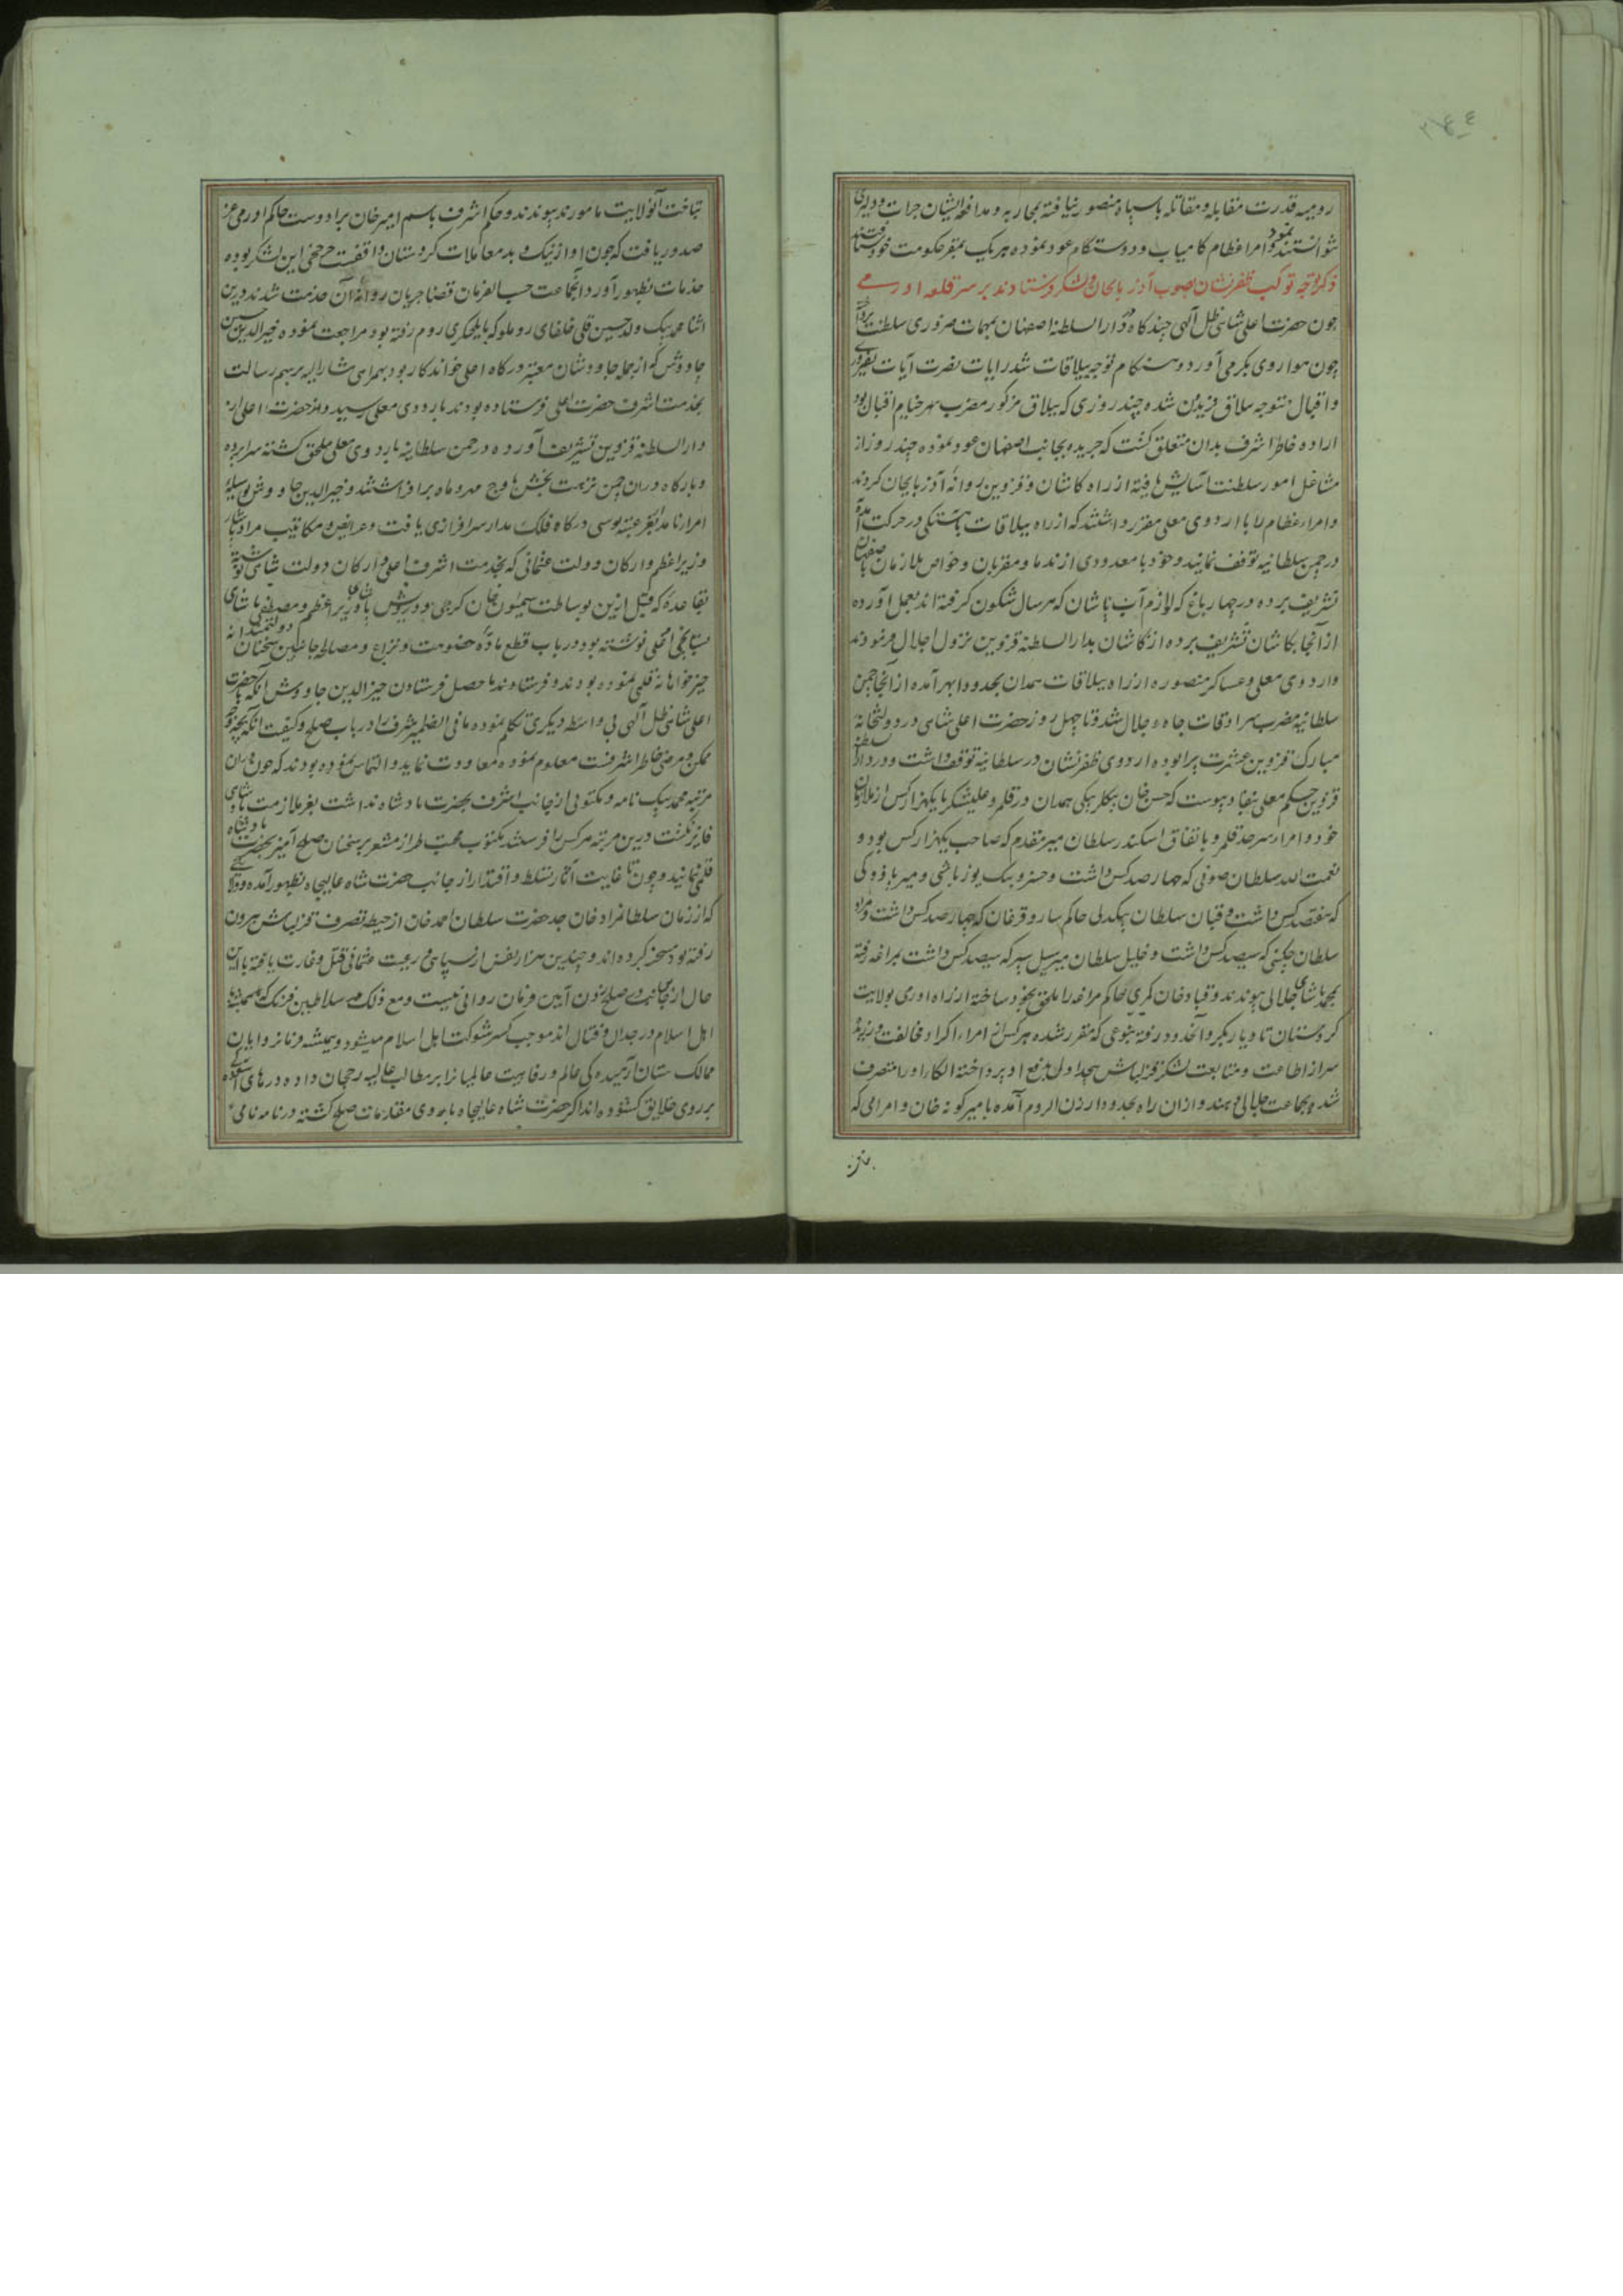 رومیه قدرت مقابله و مقاتله با سپاه منصور نیافته بمحاربه و مدافعه ایشان جرات و دلیری
نتوانستند نمود و امراء عظام کامیاب و دوستکام عود نموده هر یک بمقر حکومت خود شتافتند
ذکر توجه موکب ظفرنشان بصوب آذربایجان و لشکر فرستادند بر سر قلعه اورمی
چون حضرت اعلی شاهی ظل آلهی چند گاه در دار السلطنه اصفهان بمهمات ضروری سلطنت پرداخته
چون هوا روی بگرمی آورد و هنگام توجه ییلاقات شد رایات نصرت آیات بفیروزی
و اقبال متوجه ییلاق فریدن شده چند روزی که ییلاق مزکور مضرب سهر خیام اقبال بود
اراده خاطر اشرف بدان متعلق گشت که جریده بجانب اصفهان عود نموده چند روز از
مشاغل امور سلطنت آسایش یافته از راه کاشان و قزوین روانه آذربایجان گردند
و امراء عظام را با اردوی معلی مقرر داشتند که از راه ییلاقات باهستکی در حرکت آمده
در چمن سلطانیه توقف نمایند و خود با معدودی از ندما و مقربان و خواص ملازمان باصفهان
تشریف برده در چهار باغ که لوازم آب پاشان که هر سال شکون گرفته اند بعمل آورده
از آنجا بکاشان تشریف برده از کاشان بدار السلطنه قزوین نزول اجلال فرمودند
و اردوی معلی و عساکر منصوره از راه ییلاقات همدان بحدود ابهر آمده از آنجا چمن
سلطانیه مضرب سرادقات جاه و جلال شد و تا چهل روز حضرت اعلی شاهی در دولتخانه
مبارک قزوین عشرت پیرا بوده اردوی ظفرنشان در سلطانیه توقف داشت و در دار السلطنه
قزوین حکم معلی بنفاد پیوست که حسن خان بیکلربیکی همدان و قلمرو علیشکر با یکهزار کس از ملازمان
خود و امراء سرحد قلمرو باتفاق اسکندر سلطان میر مقدم که صاحب یکهزار کس بود و
نعمت الله سلطان صوفی که چهار صد کس داشت و خسرو بیک یوزباشی و میر
که هفتصد کس داشت و قبان سلطان بیکدلی حاکم سارو قرغان که چهار صد کس داشت و مراد
سلطان چکنی که سیصد کس داشت و خلیل سلطان سیل سپر که سیصد کس داشت بمراغه رفته
بمحمد پاشای جلالی پیوندند و قباد خان مکری حاکم مراغه را ملحق بخود ساخته از راه اوری بولایت
کردستان تا دیاربکر و آنحدود رفته بنوعی که مقرر شده هر کس از امراء اکراد مخالفت ورزیده
سر از اطاعت و متابعت لشکر قزلباش پیچد اول بدفع او پرداخته الکا او را متصرف
شد و بجماعت جلالی دهند و از آن راه بحدود ارزن الروم آمده با امیرکونه خان و امرائی که
بتاخت
بتاخت آنولایت مامورند پیوندند و حکم اشرف باسم امیر خان برادوست حاکم اورمی عز
صدور یافت که چون او از نیک و بد معاملات کردستان واقفست چرخچی این لشکر بوده
خدمات بظهور آورد و آنجماعت حسب الفرمان قضا جریان روانه آن خدمت شدند درین
اثنا محمد بیک ولد حسین قلی خلفای روملو که بایلچیکری روم رفته بود مراجعت نموده خیر الدین
چاووش که از جمله چاووشان معتبر درکاه اعلی خواندکار بود بهمراهی مشار الیه برسم رسالت
بخدمت اشرف حضرت اعلی فرستاده بودند باردوی معلی رسید و هم حضرت اعلی از
دار السلطنه قزوین تشریف آورده در چمن سلطانیه باردوی معلی ملحق کشته سراپرده
و بارکاه در آن چمن نزهت بخش باوج مهر و ماه برافراشتند و خیر الدین چاووش بوسیله
امراء نامدار بعز عتبه بوسی درکاه فلک مدار سرافرازی یافت و عرایض و مکاتیب مراد پاشا
وزیر اعظم و ارکان دولت عثمانی که بخدمت اشرف اعلی و ارکان دولت شاهی نوشته
بقاعده که قبل ازین بوساطت سیمون خان کرجی و درویش پاشای وزیر اعظم و مصطفی پاشای
نوشته بود در باب قطع ماده خصومت و نزاع و مصالحه جانبین سخنان دولتمندانه
خیرخواهانه قلمی نموده بودند و فرستادند ما حصل فرستادن خیر الدین چاووش آنکه با حضرت
اعلی شاهی ظل آلهی بی واسطه دیکری تکلم نموده ما فی الضمیر اشرف را در باب صلح و کیفیت آنکه بچه وجه
ممکن و مرضی خاطر اشرفست معلوم نموده معاودت نماید و التماس نموده بودند که چون در آن
مرتبه محمد بیک نامه و مکتوبی از جانب اشرف بحضرت پادشاه نداشت بعز ملازمت پادشاهی
فایز نکشت درین مرتبه هر کس را فرستند مکتوب محبت طراز مشعر بر سخنان صلح آمیز بحضرت پادشاه
قلمی نمایند و چون تا غایت آثار تسلط و اقتدار از جانب حضرت شاه عالیجاه بظهور آمده و ولایتی
که از زمان سلطانمراد خان جد حضرت سلطان احمد خان از حیطه تصرف قزلباش بیرون
رفته بود مسخر کرده اند و چندین هزار نفس از سپاهی و رعیت عثمانی قتل و غارت یافته با این
حال از جانب در صلح زدن آیین فرمان روائی نیست و مع ذلک سلاطین فرنک که همیشه با
اهل اسلام در جدال و قتال اند موجب کسر شوکت اهل اسلام میشود و همیشه فرمانروایان
ممالک ستان آرمیده کی عالم و رفاهیت عالمیانرا بر مطالب عالیه رجحان داده درهای
بر روی خلایق کشوده اند اکر حضرت شاه عالیجاه بادی مقدمات صلح کشته در نامه نامی